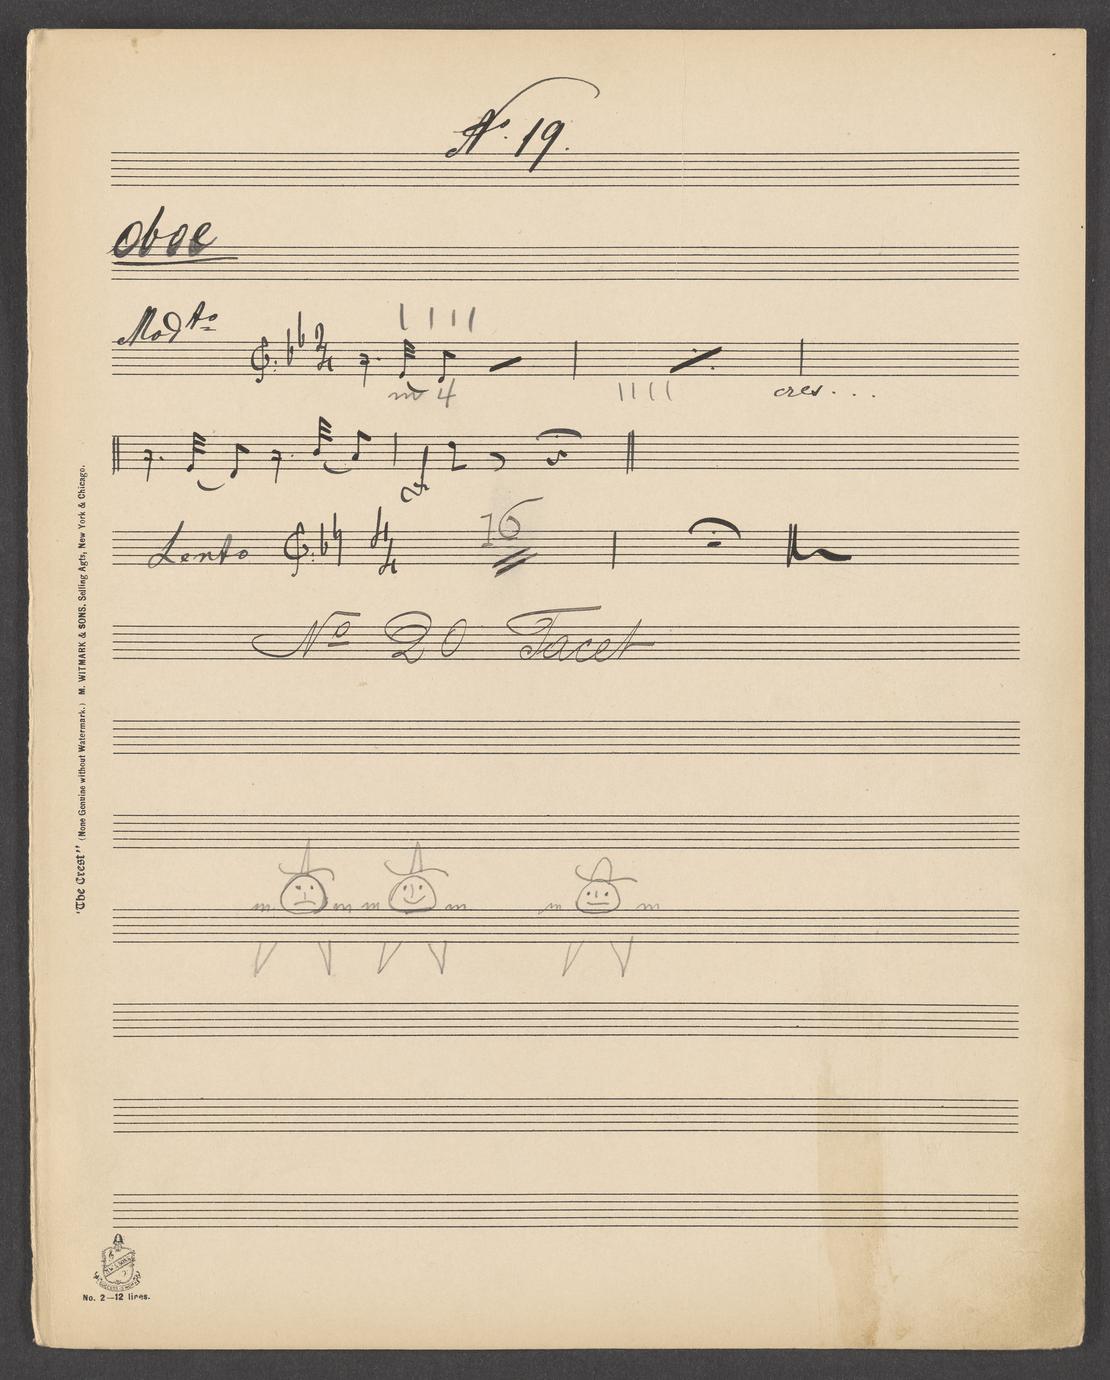 No. 19.
Oboe
Modto
2/4
m 4
cres . . .
Lento 4/4 16
No 20 Tacet
"The Crest" (None Genuine without Watermark.) M. WITMARK & SONS, Selling Agts, New York & Chicago.
No. 2—12 lines.